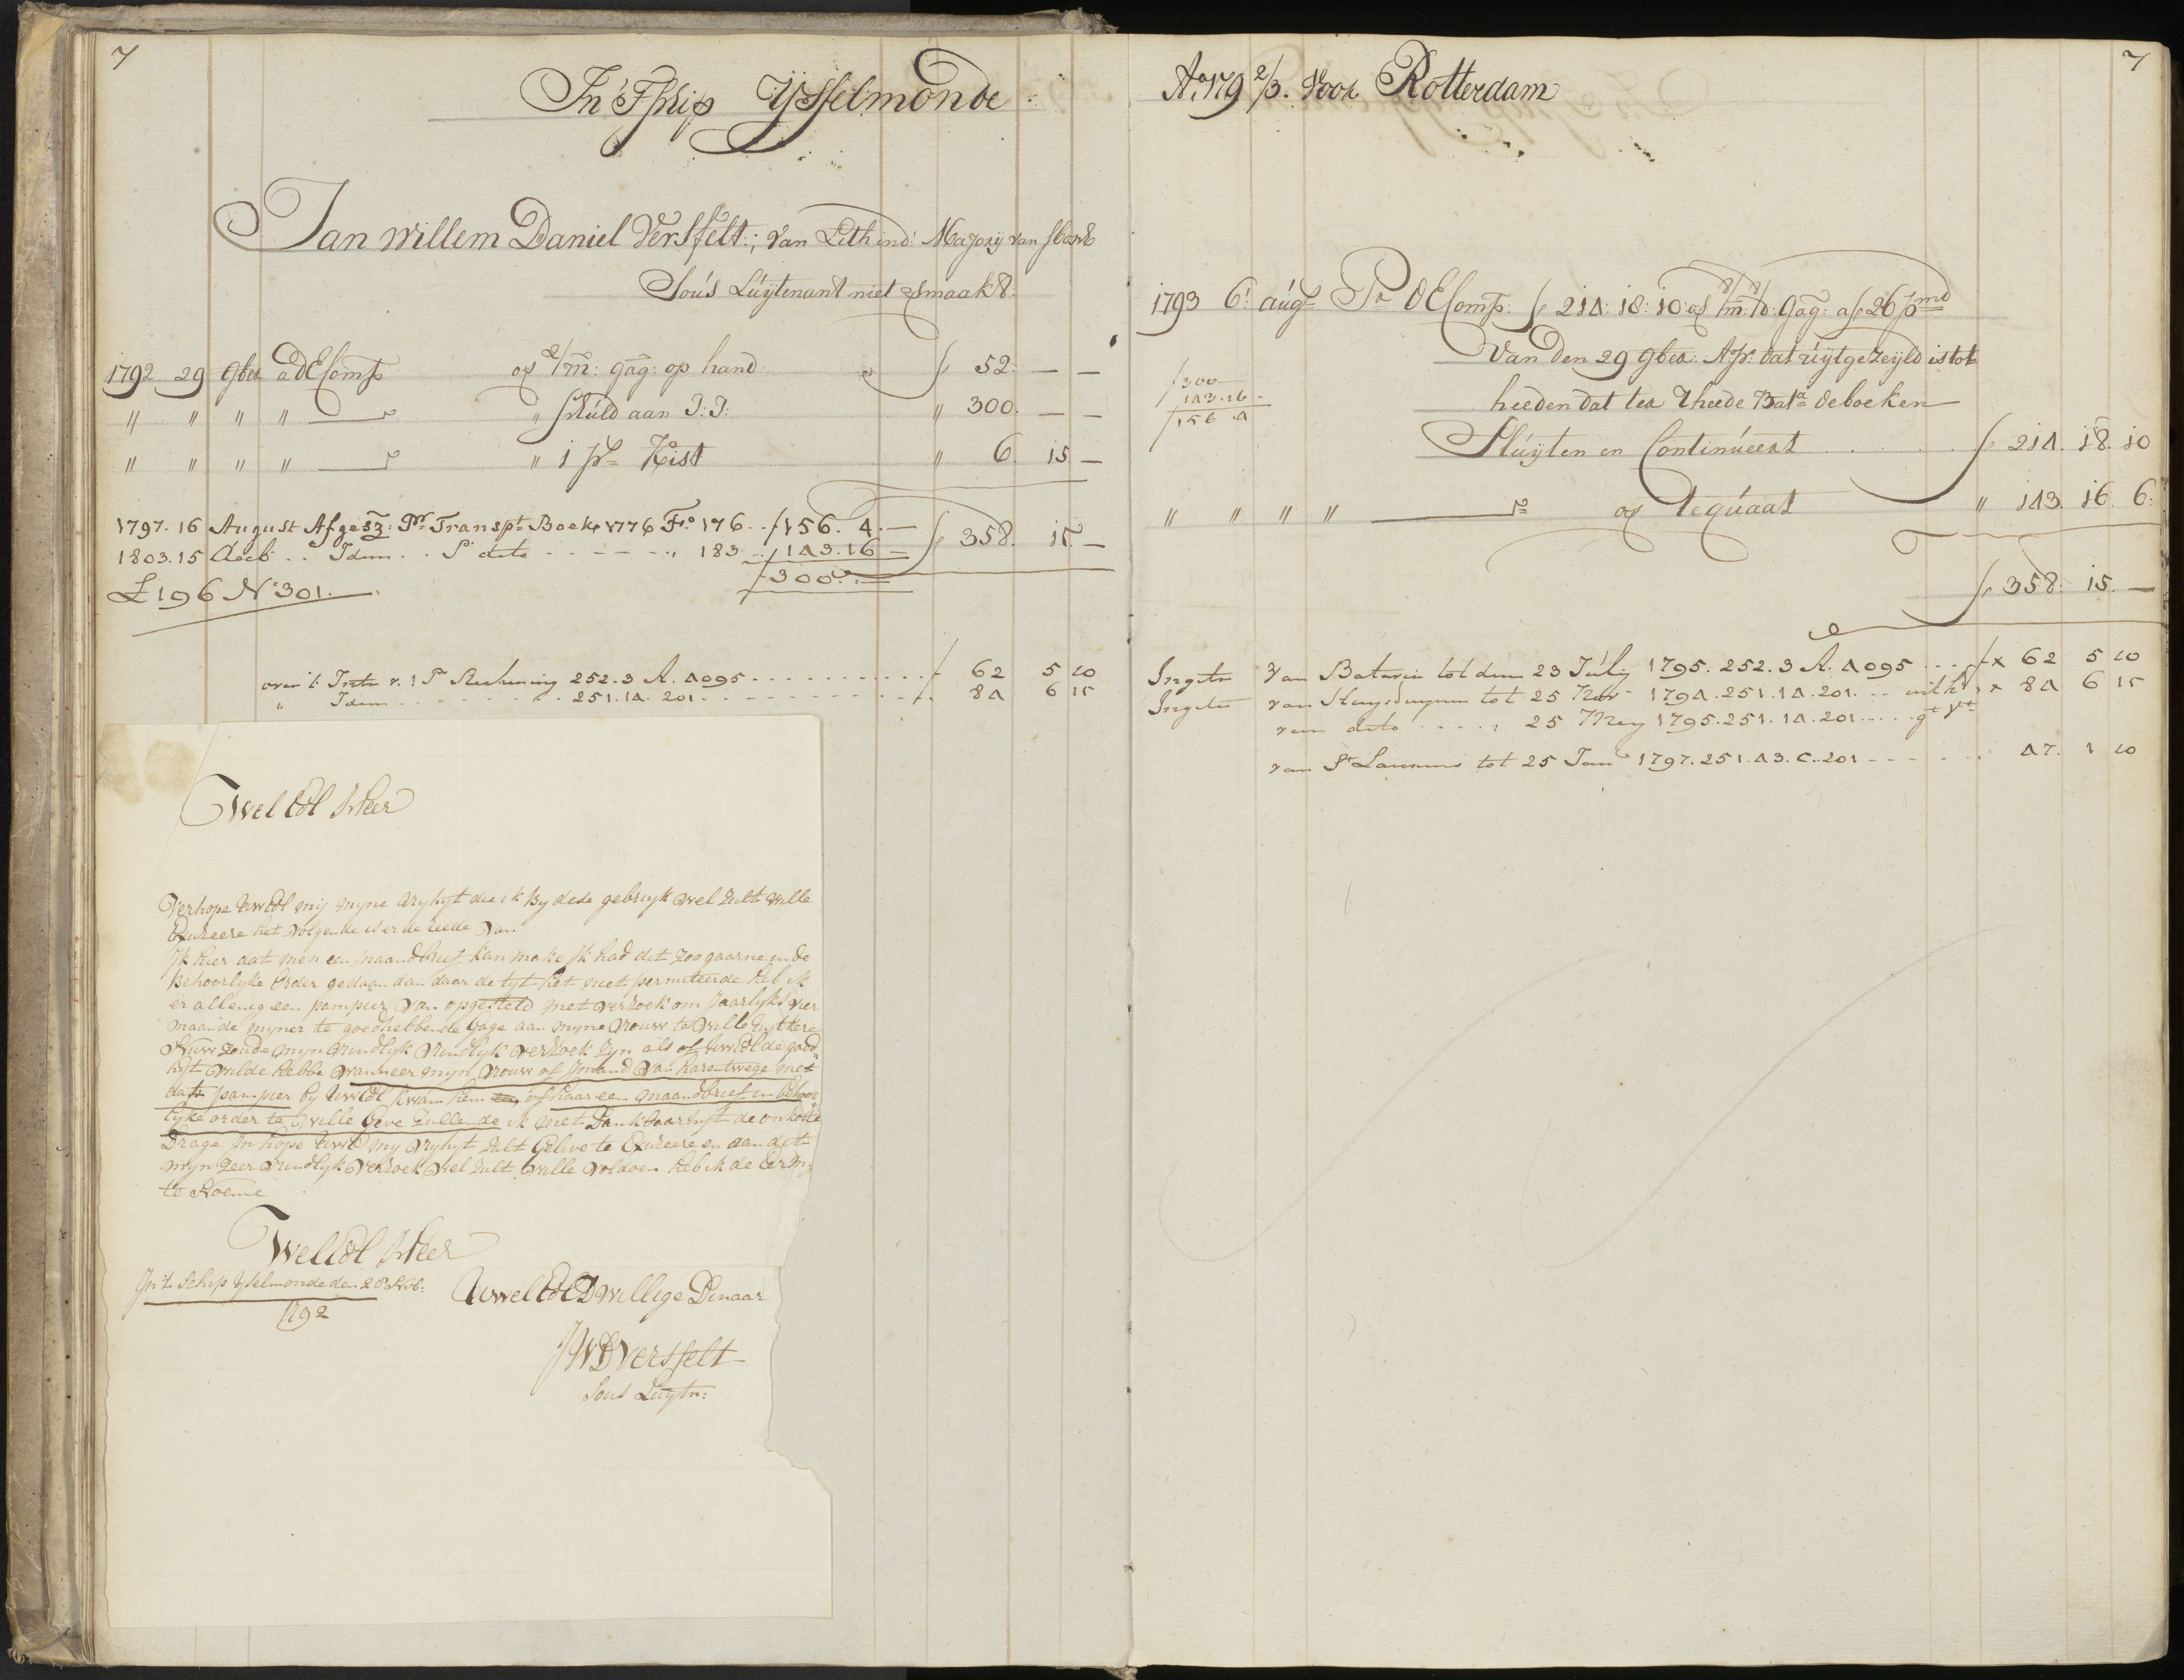 7
In 'T Schip YsseLmonde
Jan Willem Daniel Versfelt: van Lith in d: Mayorij van sBosch
Sous Luytenant niet gemaakt.
1792 29 9ber a d'E Comp op 2/m: gag: op hand ƒ 52. — —
" " " " — " schuld aan T: T: " 300. — —
" " " " — " 1 ps Kist " 6. 15. —
ƒ 358. 15. —
1797. 16 August Afgesz: Pr Transpt Boek 1776 Fo 176 .. ƒ 156. 4. —
1803. 15 Decb .. Idem .. P dito - - - - " 183 .. ƒ 143. 16 —
ƒ 300. —
L 196 No 301.
over 't Intr v. 1 Pr Rekening 252. 3 A. 4095 . . . . ƒ 62 5 10
" Idem . . . . 251. 14. 201 . . . . 84 6 15
Wel Edl Heer
Verhope UwEdl mij myne vryhyt die ik by dese gebruyk wel zult wille
Excuseere het volgende is er de reede van
Ik hier dat men een maandbrief kan make Ik had dit zoo gaarne in de
behoorlyke order gedaan dan daar de tyt het niet permiteerde heb ik
er allenig een pampier van opgesteld met verzoek om Jaarlyks vier
maande myner te goedhebbende Gage aan myne vrouw te wille uytkere
Nuw zoude myn vrindlyk vrindlyk verzoek zyn als of UwEdl de goed„
hyt wilde hebbe wanneer myn vrouw of Imand van harentwege met
dat pampier by UwEdl kwam hem of haar een maandbrief in behoor„
lyke order te wille Geve zullende ik met Dankbaarhyt de onkoste
Drage In hope UwEd my vryhyt zult Gelieve te Excuseere en aan dit
myn zeer vrindlyk verzoek wel zult wille voldoen heb ik de eer my
te Noeme
WelEdl Heer
In't Schip Yselmonde den 28 Novb:
1792
UwelEdl DWillige Dinaar
JWDVersfelt
Sous Luytn:
7
Ao 179 2/3. voor Rotterdam
1793 6. augs Pr d'E Comp: ƒ 214: 18: 10 op 8/m: 8/d: Gag: a ƒ 26 p md
van den 29 9ber: A: P: dat uijtgezeijld is tot
heeden dat ter Rheede Bata de boeken
Sluijten en Continueert . . . . ƒ 214. 18. 10
ƒ 300 —
ƒ 143. 16 -
ƒ 156. 4
" " " " — op Requart " 143. 16. 6:
ƒ 358. 15. —
Ingetr van Batavia tot dum 23 July 1795. 252. 3 A. 4095 . . . ƒ x 62 5 10
Ingetr van tot 25 Nov 1794. 251. 14. 201. . . x 84 6 15
van dito . . . . 25 Mey 1795. 251. 14. 201 . . . .
van St Laurens tot 25 Jan 1797. 251. 43. C. 201 - - - - 47. 1 10